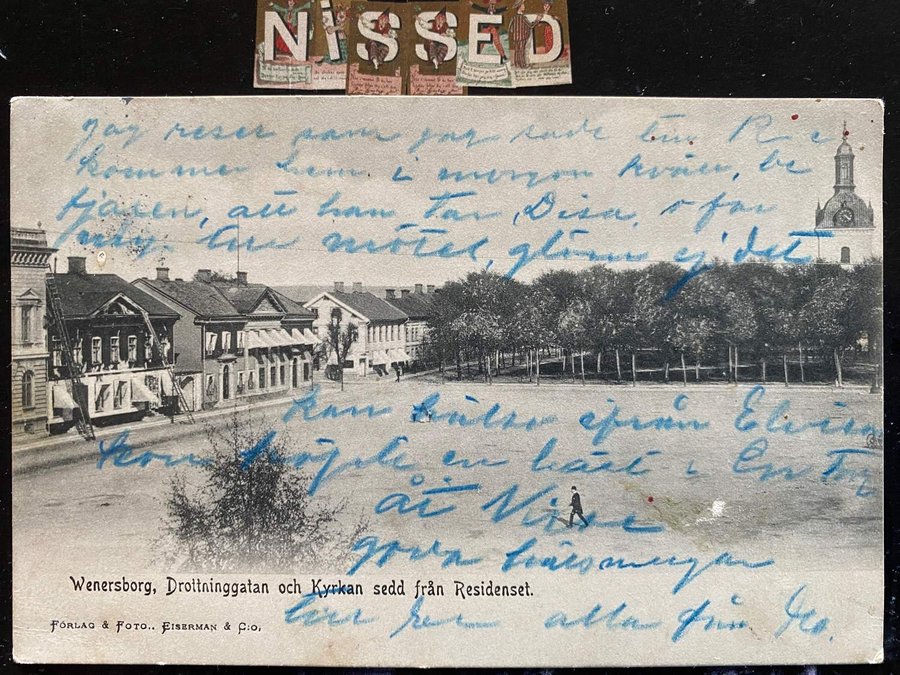 NISSED
Jag reser som jag sade till R
kommer hem i morgon kväll, be
att han tar Disa, o far
mig till mötet, glöm ej det
kan hälsa ifrån Elvira
hon en häst i
åt
goda hälsningar
till er alla från
Wenersborg, Drottninggatan och Kyrkan sedd från Residenset.
FÖRLAG & FOTO.. EISERMAN & C:O,